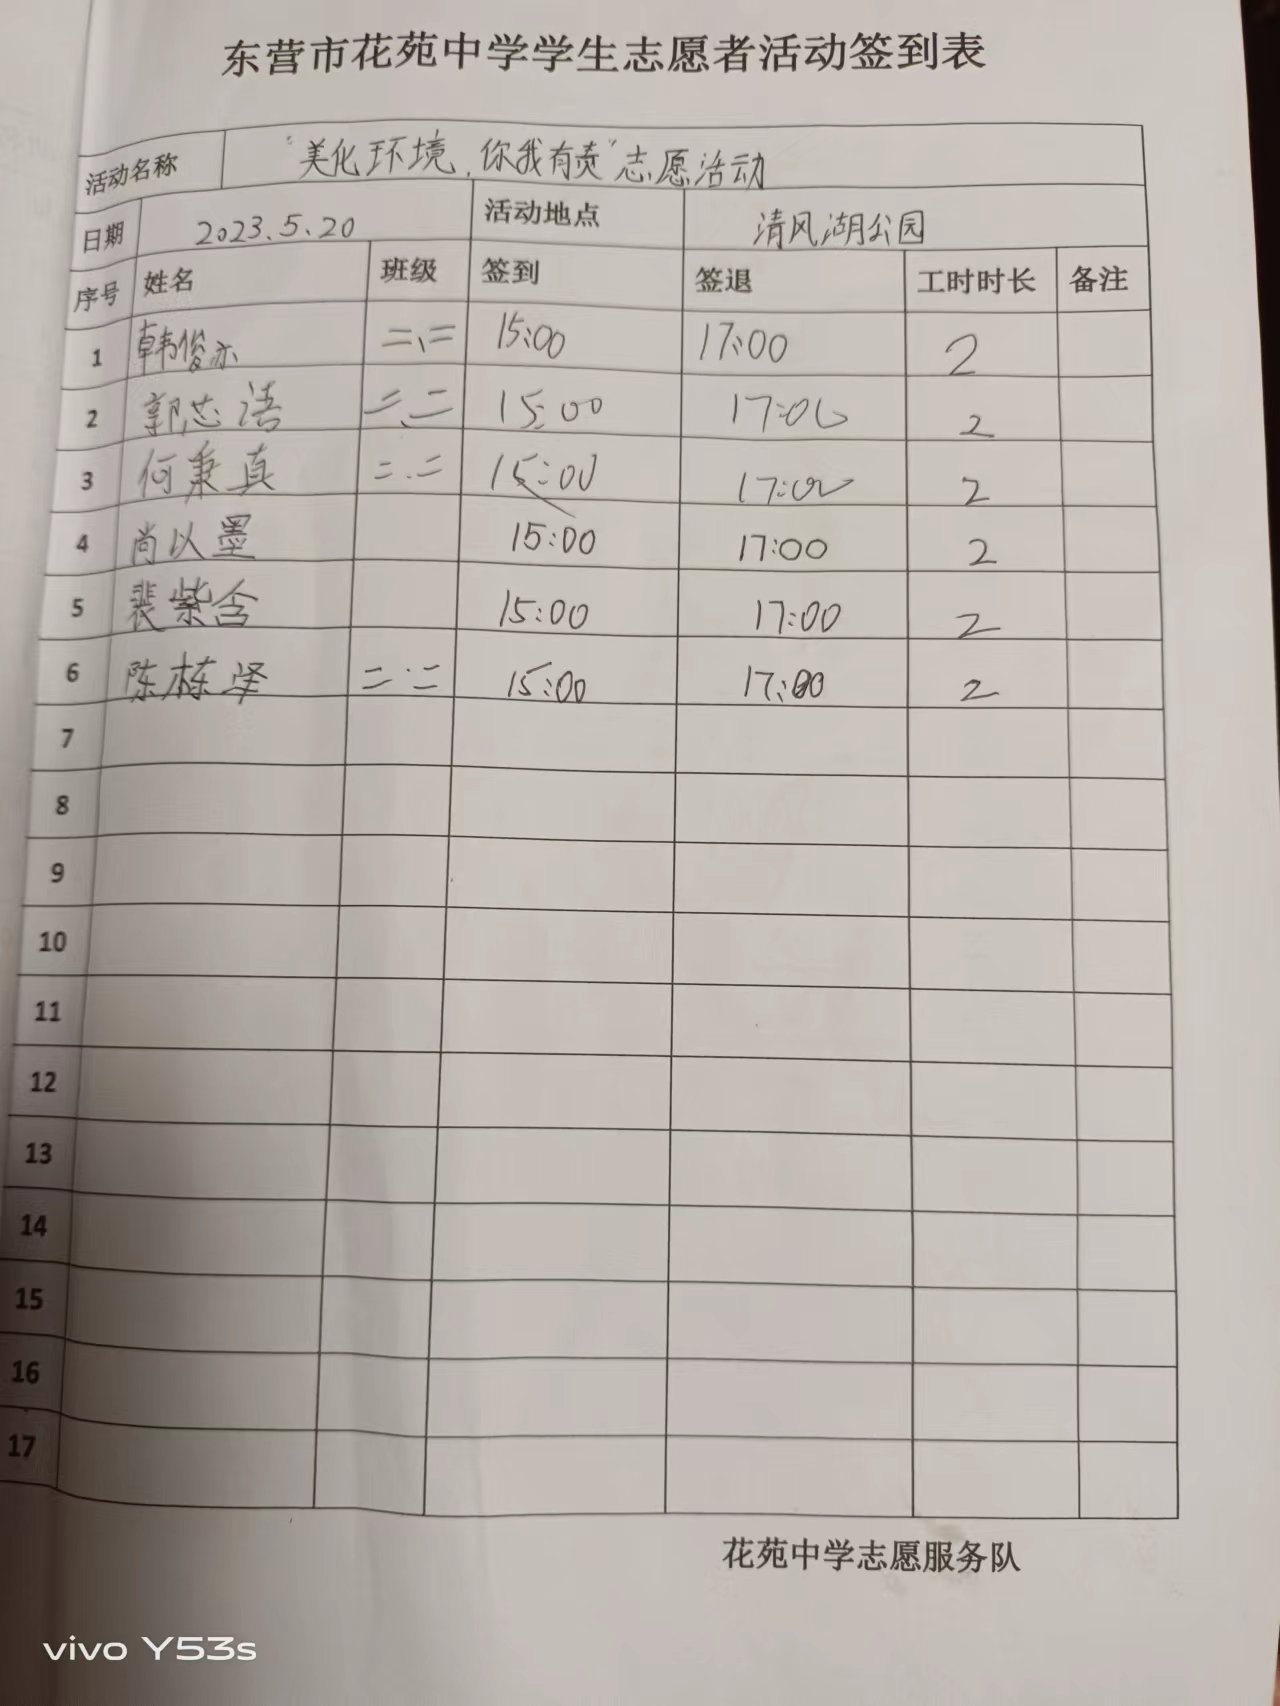 东营市花苑中学学生志愿者活动签到表
活动名称 “美化环境,你我有责”志愿活动
日期 2023.5.20 活动地点 清风湖公园
序号 姓名 班级 签到 签退 工时时长 备注
1 韩俊亦 二、二 15:00 17:00 2
2 郭芯语 二、二 15:00 17:00 2
3 何秉真 二.二 15:00 17:00 2
4 尚以墨 15:00 17:00 2
5 裴紫含 15:00 17:00 2
6 陈栋泽 二.二 15:00 17:00 2
7
8
9
10
11
12
13
14
15
16
17
花苑中学志愿服务队
vivo Y53s